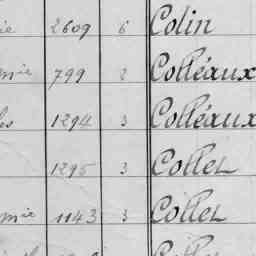 ie 2609 6 Colin
mie 799 2 Colléaux
les 1294 3 Colléaux
1295 3 Collet
mie 1143 3 Collet